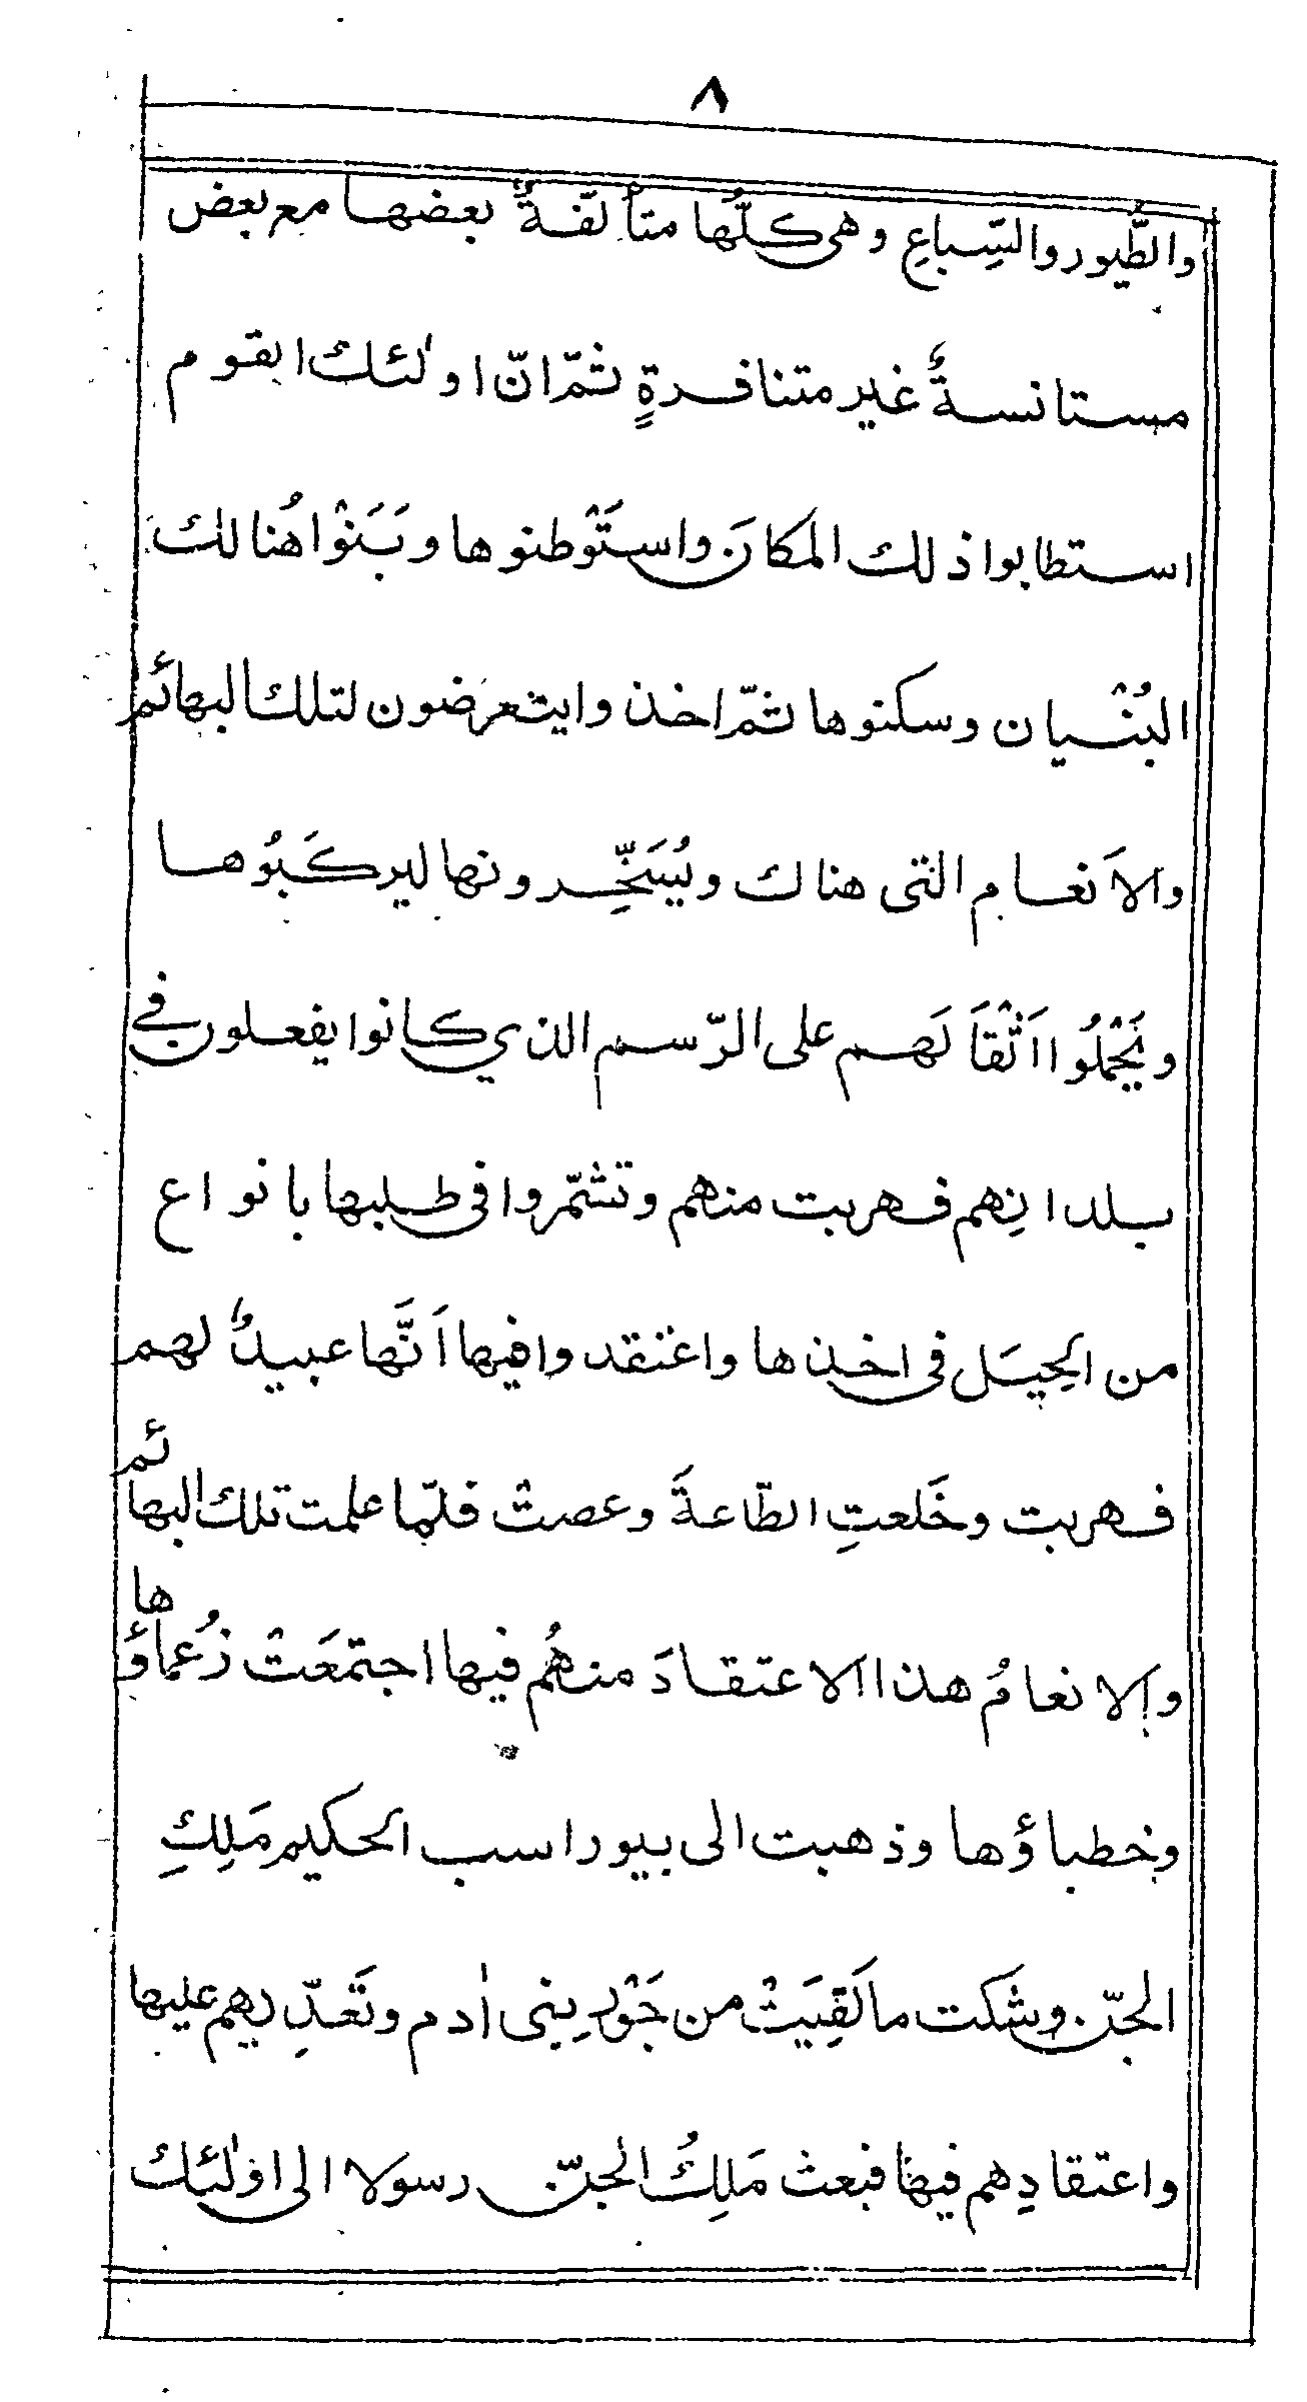 ٨
والطّيور والسِّباعِ وهى كلُّها متألّفةٌ بعضها مع بعض
مستانسةٌ غير متنافرةٍ ثمّ انّ اولٰئك القوم
استطابوا ذلك المكانَ واستَوْطنوها وبَنَوْا هُنالك
البُنْيان وسكنوها ثمّ اخذوا يتعرّضون لتلك البهائم
والاَنعام التى هناك ويُسَخِّرونها ليركَبُوها
ويَحْمِلُوا اَثْقاَلَهم على الرّسم الذي كانوا يفعلون في
بلدانِهم فهربت منهم وتشمّروا فى طلبها بانواع
من الحِيَل فى اخذها واعتقدوا فيها اَنَّها عبيدٌ لهم
فهربت وخَلعتِ الطّاعةَ وعصتْ فلمّا علمت تلك البهائم
والانعامُ هذا الاعتقادَ منهُم فيها اجتمعَتْ زُعماؤُها
وخطباؤها وذهبت الى بيوراسب الحكيم مَلِكِ
الجنّ وشكت ما لَقِيَتْ من جَوْرِ بنى اٰدم وتَعَدِّيهم عليها
واعتقادِهم فيها فبعث مَلِكُ الجنّ رسولا الى اولٰئك